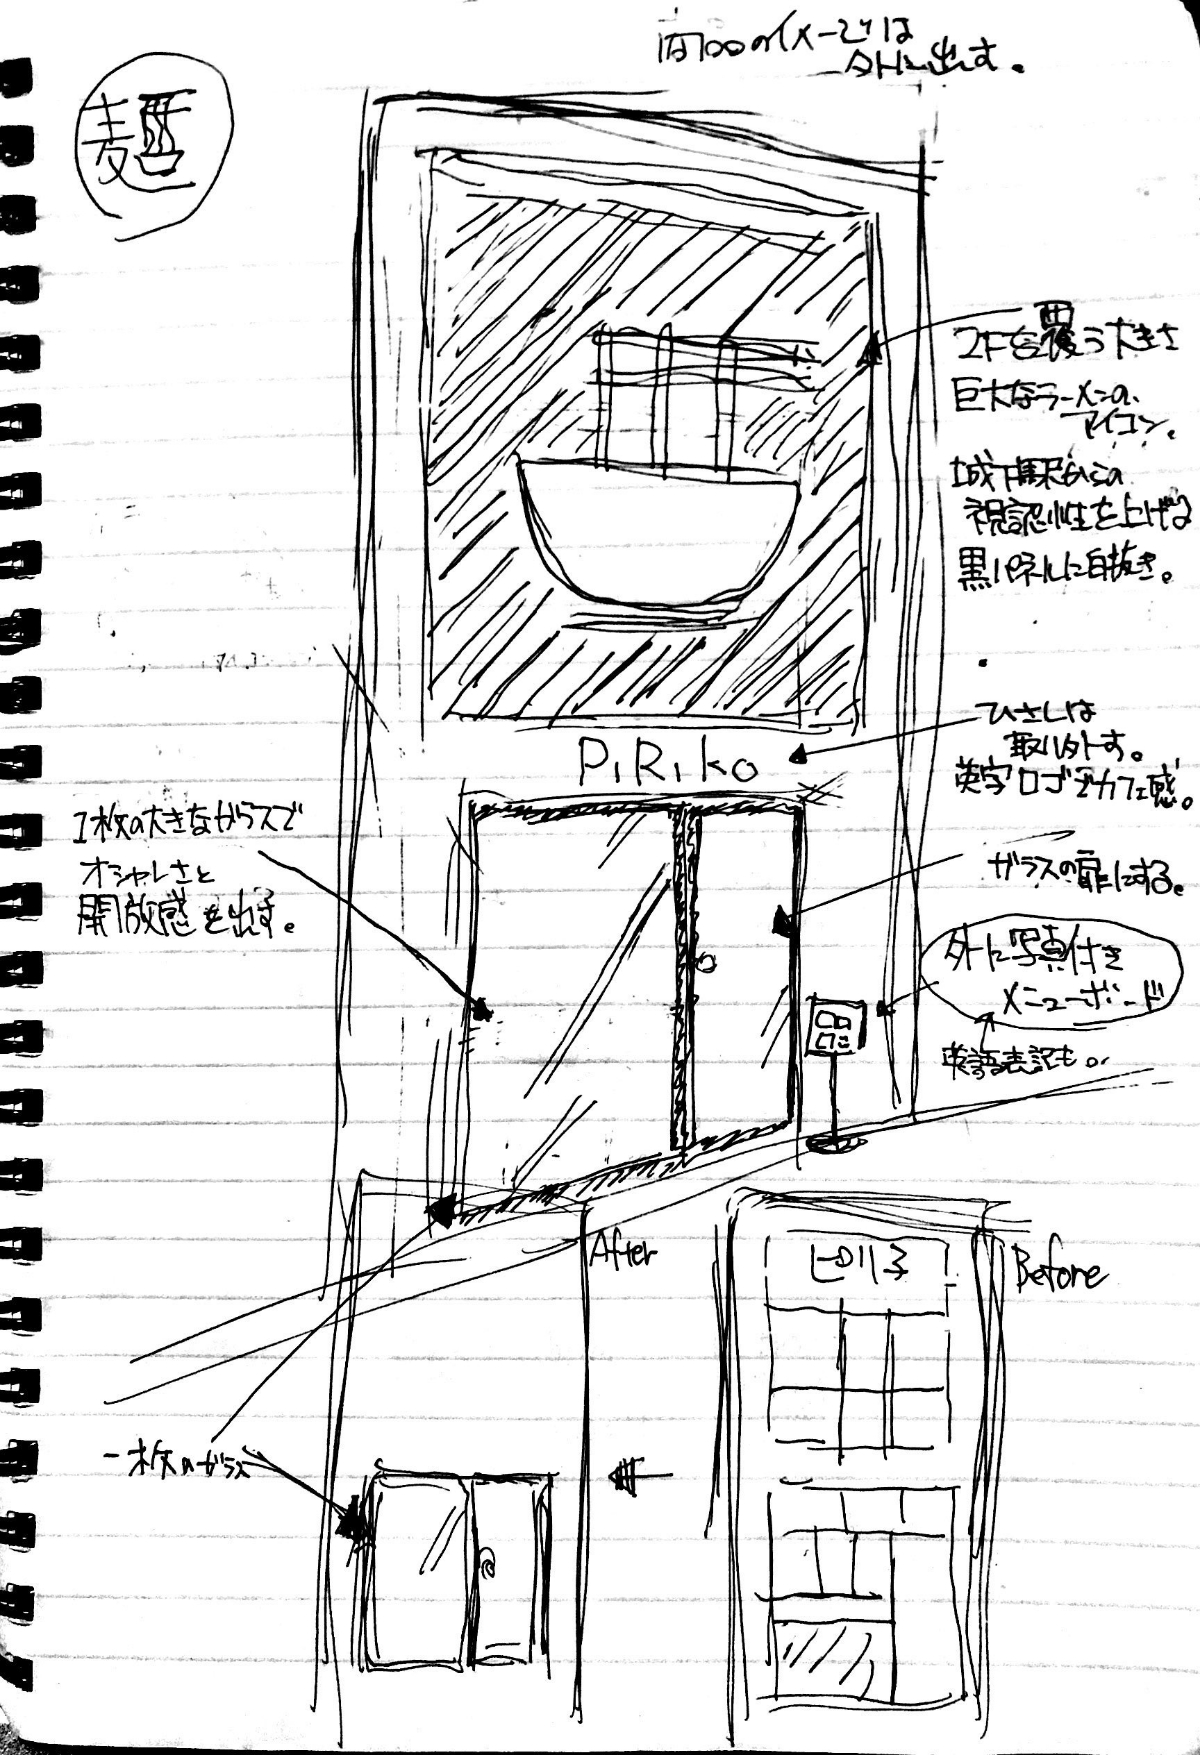 のイメージは
外に出す。
麺
2Fを覆う大きさ
巨大なラーメンの
アイコン。
城下駅からの
視認性を上げる
黒パネルに白抜き。
PiRiko
ひさしは
取り外す。
英字ロゴでカフェ感。
1枚の大きなガラスで
オシャレさと
開放感を出す。
ガラスの扉にする。
外に写真付き
メニューボード
英語表記も。
After
ピリ子
Before
一枚のガラス